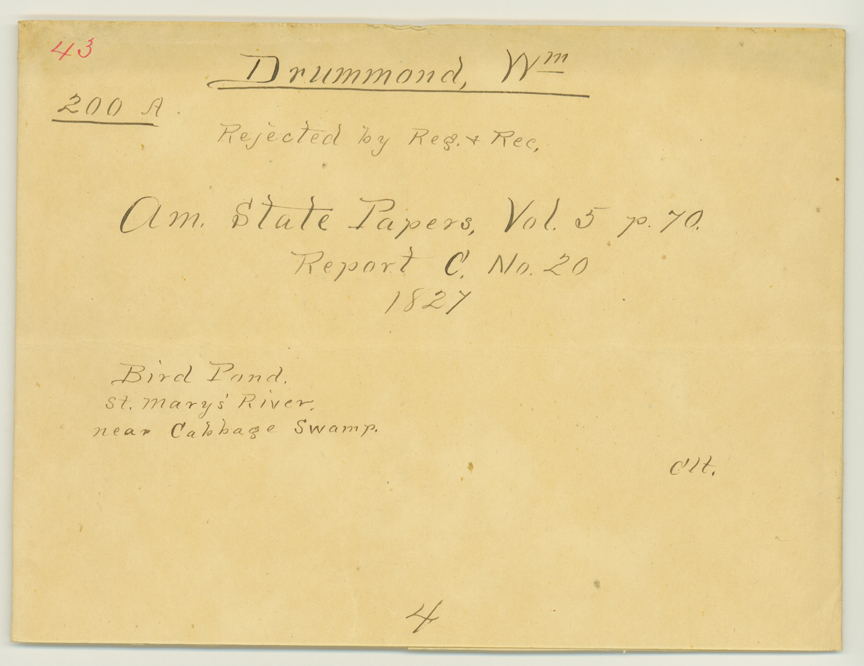 43
Drummond, Wm
200 A
Rejected by Reg. & Rec.
Am. State Papers, Vol. 5 p. 70.
Report C. No. 20
1827
Bird Pond.
St. Marys' River.
near Cabbage Swamp.
4